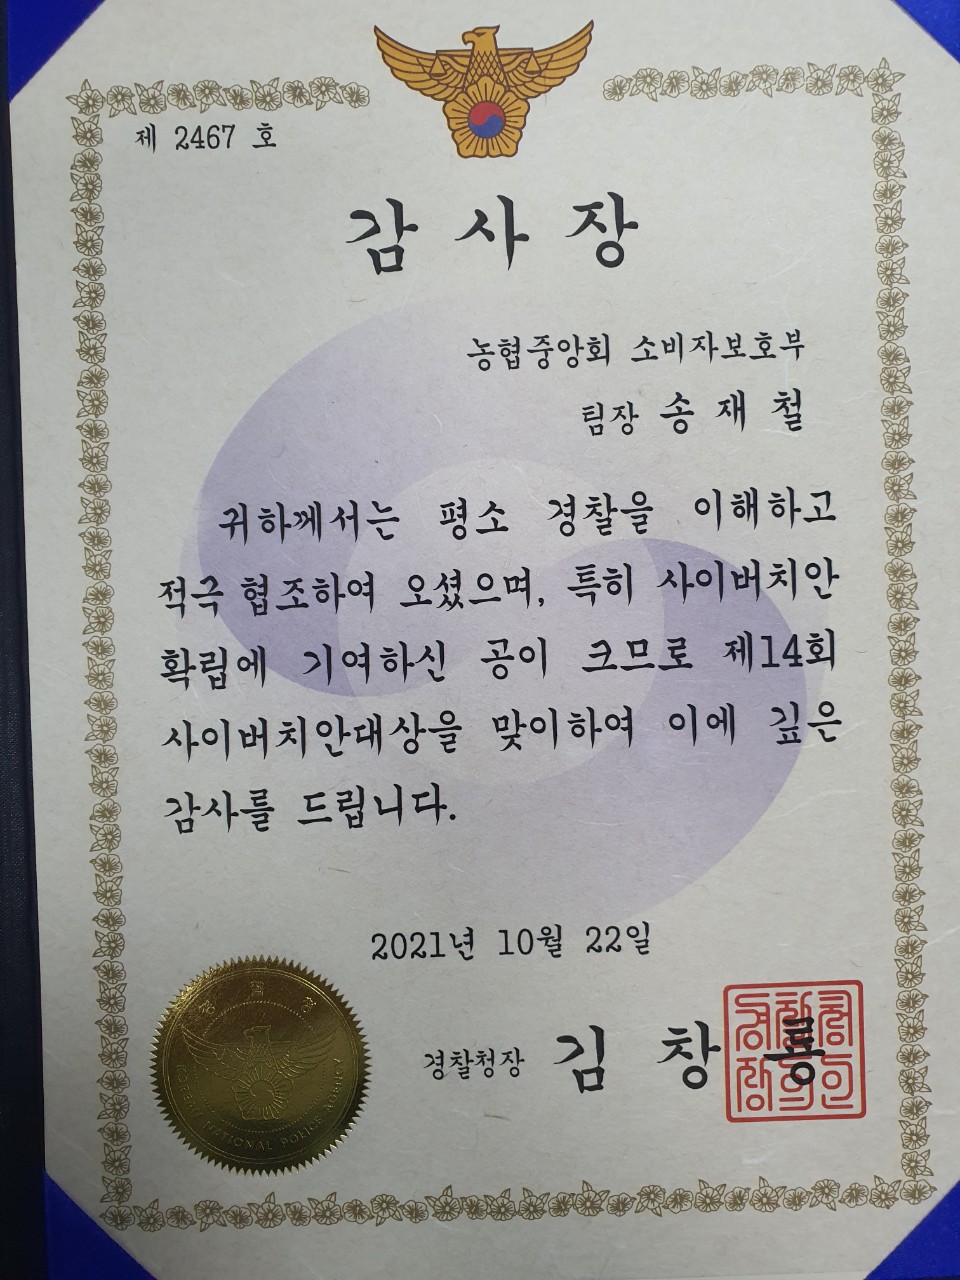 제 2467 호
감 사 장
농협중앙회 소비자보호부
팀장 송 재 철
귀하께서는 평소 경찰을 이해하고
적극 협조하여 오셨으며, 특히 사이버치안
확립에 기여하신 공이 크므로 제14회
사이버치안대상을 맞이하여 이에 깊은
감사를 드립니다.
2021년 10월 22일
경찰청장 김 창 룡
경찰청
장의인
NATIONAL POLICE AGENCY